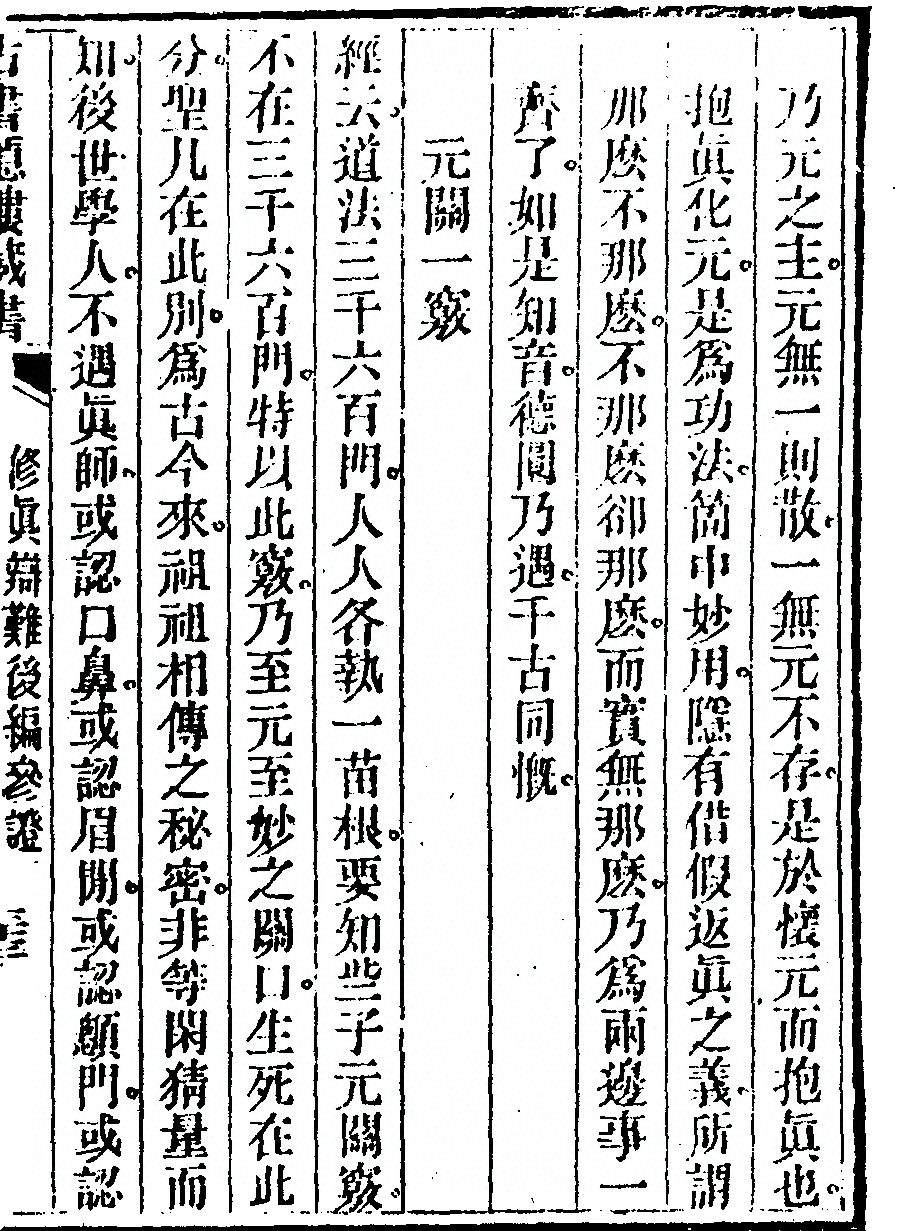 乃元之主。元無一則散。一無元不存。是於懷元而抱眞也。
抱眞化元。是爲功法。箇中妙用。隱有借假返眞之義。所謂
那麽不那麽。不那麽卻那麽。而實無那麽。乃爲兩邊事一
齊了。如是知音。德圓乃遇。千古同慨。
元關一竅
經云。道法三千六百門。人人各執一苗根。要知些子元關竅。
不在三千六百門。特以此竅。乃至元至妙之關口。生死在此
分。聖凡在此別。爲古今來。祖祖相傳之秘密。非等閑猜量而
知。後世學人。不遇眞師。或認口鼻。或認眉閒。或認顖門。或認
古書隱樓藏書
修眞辯難後編參證